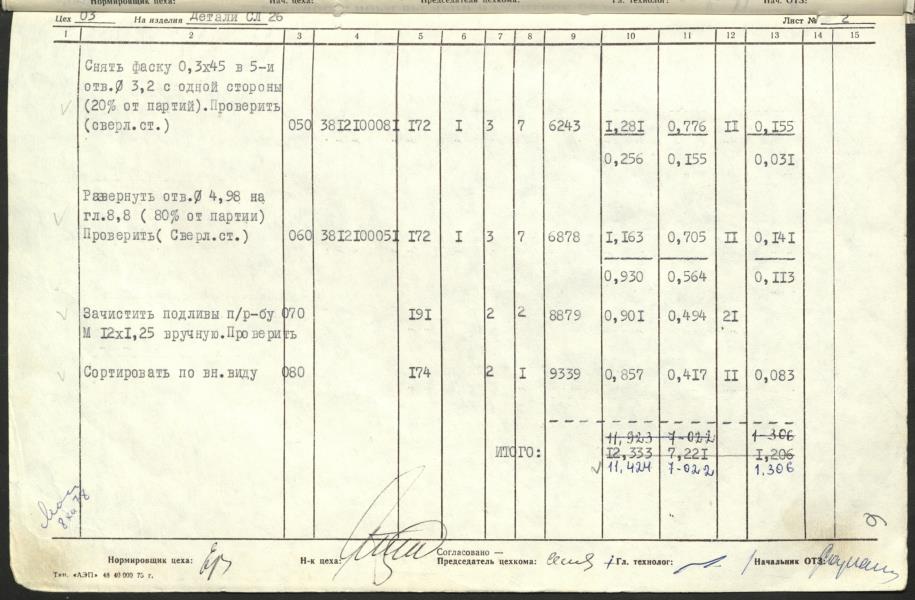 Нормировщик цеха: Нач. цеха: Председатель цехкома: Гл. технолог: Нач. ОТЗ:
Цех 03 На изделия Детали СЛ 26 Лист № 2
1 2 3 4 5 6 7 8 9 10 11 12 13 14 15
Снять фаску 0,3х45 в 5-и
отв.Ø 3,2 с одной стороны
(20% от партий).Проверить
(сверл.ст.) 050 38I2I0008I I72 I 3 7 6243 I,28I 0,776 II 0,I55
0,256 0,I55 0,03I
Развернуть отв.Ø 4,98 на
гл.8,8 ( 80% от партии)
Проверить( Сверл.ст.) 060 38I2I0005I I72 I 3 7 6878 I,I63 0,705 II 0,I4I
0,930 0,564 0,II3
Зачистить подливы п/р-бу 070 I9I 2 2 8879 0,90I 0,494 2I
М I2хI,25 вручную.Проверить
Сортировать по вн.виду 080 I74 2 I 9339 0,857 0,4I7 II 0,083
11,923 7-022 1-306
ИТОГО: I2,333 7,22I I,206
11,424 7-022 1.306
Нормировщик цеха: Н-к цеха: Согласовано —
Председатель цехкома: Гл. технолог: Начальник ОТЗ:
Тип. «АЭП» 48 40 000 75 г.